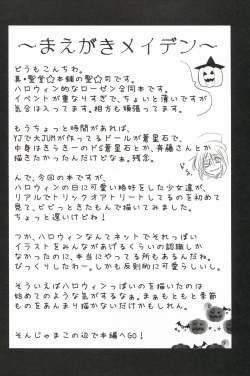 ～まえがきメイデン～
どうもこんちわ。
真・聖堂☆本舗の聖☆司です。
ハロウィン的なローゼン合同本です。
イベントが重なりすぎで、ちょいと薄いですが
気合は入ってます。相方も頑張ってます。
もうちょっと時間があれば、
YJで大JUMが作ってるドールが蒼星石とで、
中身はきらきーのドS蒼星石とか、斉藤さんとか
描きたかったんだけどなぁ。残念。
んで、今回の本ですが、
ハロウィンの日に可愛い格好をした少女達が、
リアルでトリックオアトリートしてるのを初めて
見て、ビビっときたもんで描いてみました。
ちょっと遅いけどね！
つか、ハロウィンなんてネットでそれっぽい
イラストをみんながあげるくらいの認識しか
なかったのに、本当にやってる所もあるんだね。
びっくりしたわー。しかも反則的に可愛らしいし。
そういえばハロウィンっぽいのを描いたのは
始めてのような気がするなぁ。まぁもともと季節
ものをあんまり描かないだけかもしれん。
そんじゃまこの辺で本編へGO！